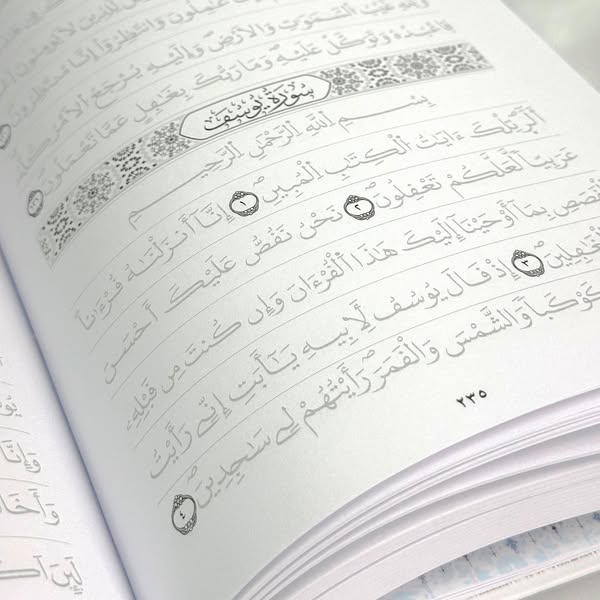 وَانتَظِرُوا إِنَّا
غَيْبُ السَّمَٰوَٰتِ وَالْأَرْضِ وَإِلَيْهِ يُرْجَعُ الْأَمْرُ كُلُّهُ
فَاعْبُدْهُ وَتَوَكَّلْ عَلَيْهِ وَمَا رَبُّكَ بِغَٰفِلٍ عَمَّا تَعْمَلُونَ
سُورَةُ يُوسُفَ
بِسْمِ اللَّهِ الرَّحْمَٰنِ الرَّحِيمِ
أَلَٓرٰ تِلْكَ ءَايَٰتُ الْكِتَٰبِ الْمُبِينِ ١ إِنَّا أَنزَلْنَٰهُ قُرْءَٰناً
عَرَبِيّاً لَّعَلَّكُمْ تَعْقِلُونَ ٢ نَحْنُ نَقُصُّ عَلَيْكَ أَحْسَنَ
الْقَصَصِ بِمَا أَوْحَيْنَا إِلَيْكَ هَٰذَا الْقُرْءَانَ وَإِن كُنتَ مِن قَبْلِهِ
الْغَٰفِلِينَ ٣ إِذْ قَالَ يُوسُفُ لِأَبِيهِ يَٰأَبَتِ إِنِّي رَأَيْتُ
كَوْكَباً وَالشَّمْسَ وَالْقَمَرَ رَأَيْتُهُمْ لِي سَٰجِدِينَ ٤
٢٣٥
وَإِنَّا